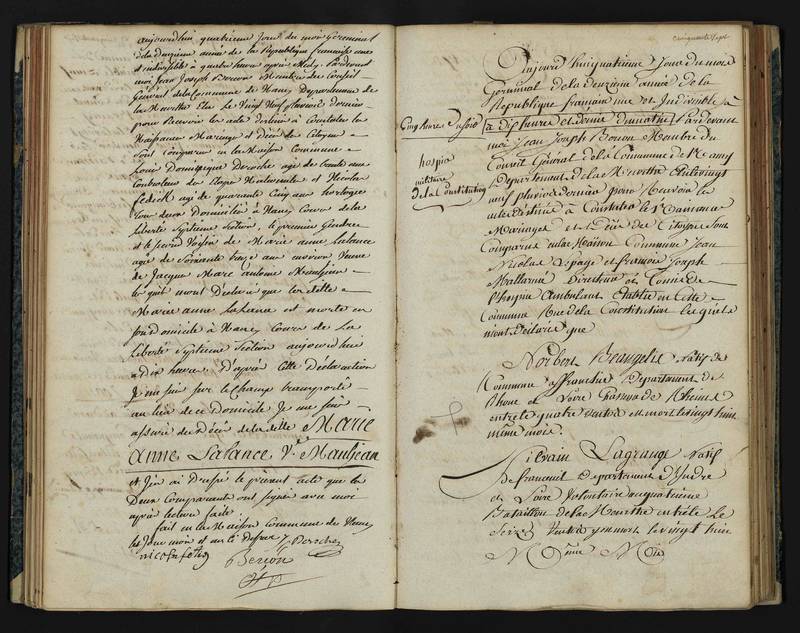 aujourd'huy quatrieme jour du mois Germinal
de la deuxieme année de la République française une
et indivisible à quatre heures après Midy Pardevant
moi Jean Joseph Benon Membre du Conseil
Général de la Commune de Nancy Departement de
la Meurthe Elu le Vingt Neuf pluviose dernier
pour Recevoir les actes destinés à Constater les
Naissances Mariages et Décès des Citoyens
Sont comparus en la Maison Commune
Louis Dominique Deroche agé de trente ans
Controleur de et Nicolas
fetich agé de quarante Cinq ans horloger
tous deux Domiciliés à Nancy Cours de la
Liberté Septieme Section, le premier Gendre
et le second Voisin de Marie anne Lalance
agée de Soixante treize ans environ Veuve
de Jacque Marc antoine Mansjean
lesquels mont Déclaré que la dite
Marie anne Lalance est morte en
son domicile à Nancy Cours de La
Liberté Septieme Section aujourd'hui
a Dix heures D'après cette Déclaration
Je me suis sur le Champ transporté
au lieu de ce Domicile Je me suis
assuré du Décès de la dite Marie
Anne Lalance Ve Mansjean
et J'en ai Dressé le présent acte que les
Deux Comparants ont signé avec moi
après lecture faite
fait en la Maison Commune de Nancy
les Jour mois et an ci Dessus / Deroche
nicolas fetich
Benon
Cinquante Sept
Aujourd'huy quatrieme Jour du mois
Germinal de la deuxieme année de la
République française une et Indivisible à
Cinq heures Du soir
à dix heures et demie du matin Pardevant
moi Jean Joseph Benon Membre du
Conseil Général de la Commune de Nancy
hospice
militaire
de la Constitution
Departement de la Meurthe Elu le vingt
neuf pluviose dernier pour Recevoir les
actes destinés à Constater les Naissances
Mariages et les Décès des Citoyens Sont
Comparus en la Maison Commune Jean
Nicolas Lepage et francois Joseph
Directeur et Commis de
l'hospice Ambulant Etablie en Cette
Commune Rue de la Constitution lesquels
mont Déclaré que
Norbert natif de
Commune affranchie Departement de
Rhone et Loire
entré le quatre Ventose est mort le vingt huit
même mois.
Silvain Lagrange Natif
De francueil Departement d'Indre
et Loire Volontaire au quatrieme
Bataillon de la Meurthe entré le
Seize Ventose y est mort le vingt huit
Même Mois